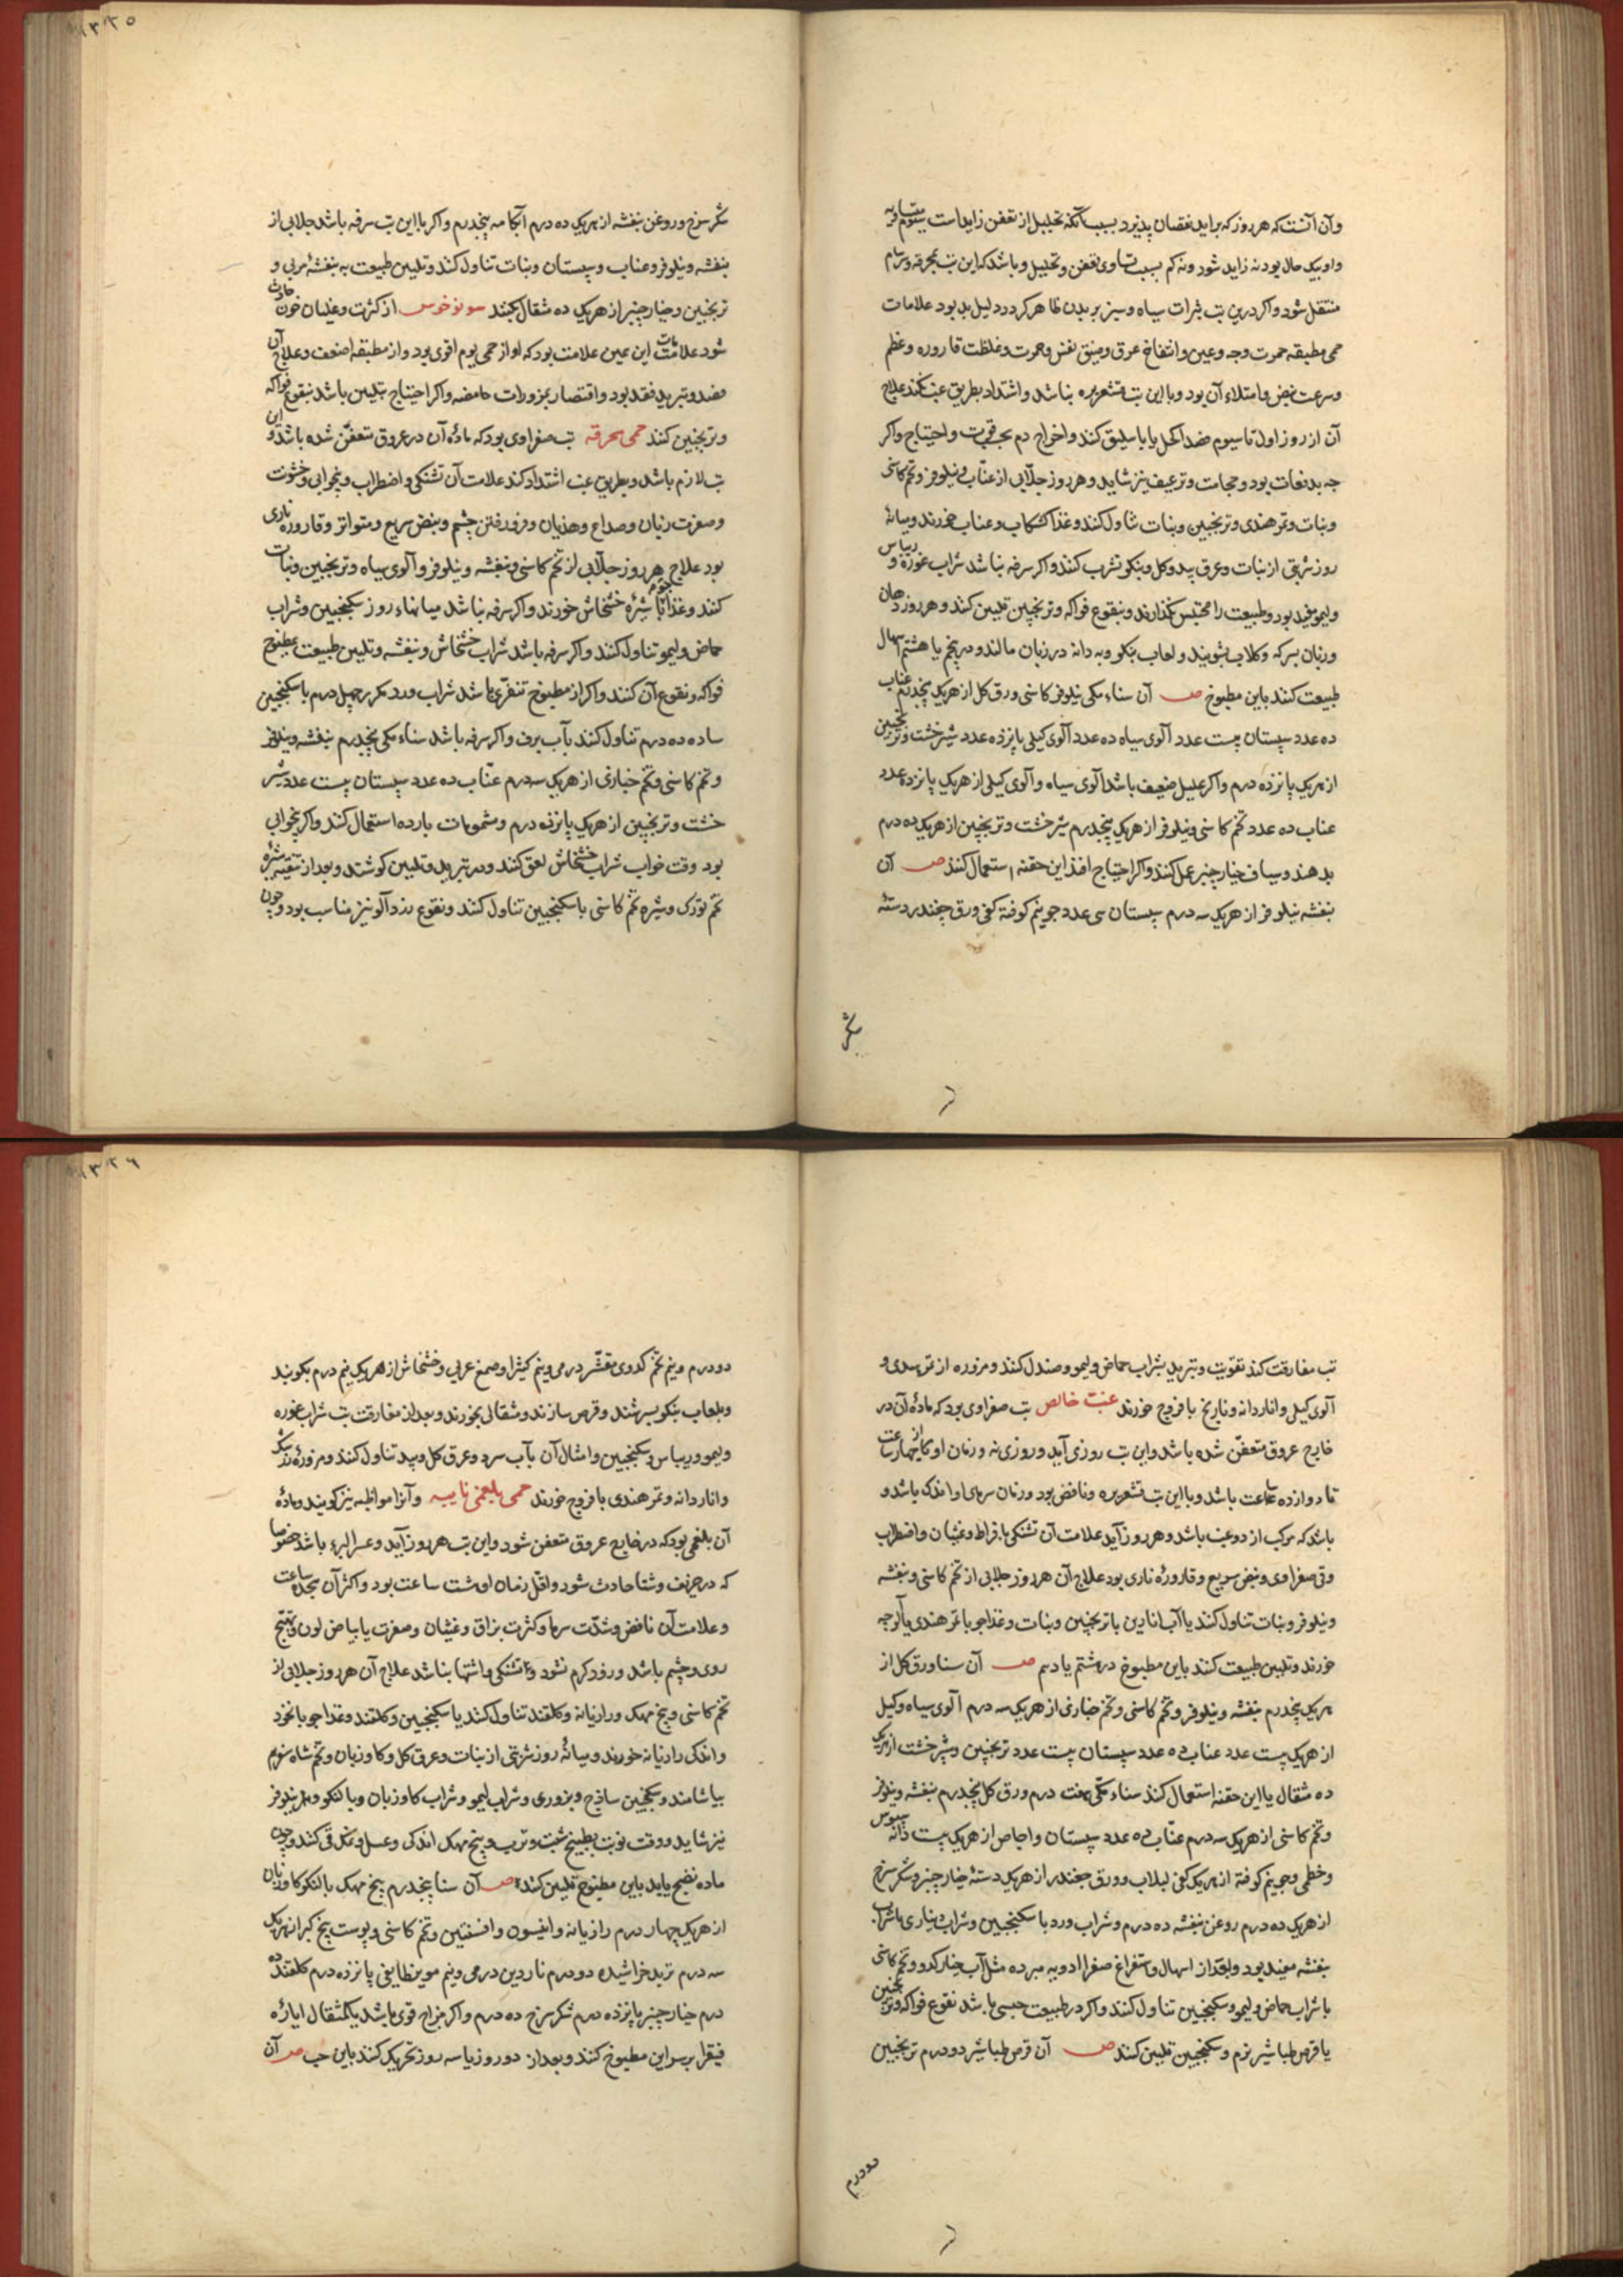 ١٣٢٥
وآن آنست که هر روز که براید نقصان پذیرد بسبب آنکه تحلیل از تعفن زایداست سیوم متساویه
واو بیک حال بود نه زاید شود ونه کم بسبب تساوی تعفن وتحلیل وباشد که این تب بمحرقه وسرسام
منتقل شود واکر درین تب بثرات سیاه وسبز بر بدن ظاهر کردد دلیل بد بود علامات
حمی مطبقه حمرت وجه وعین وانتفاخ عروق وضیق نفس وحمرت وغلظت قاروره وعظم
وسرعت نبض وامتلاء آن بود وبا این تب قشعریره نباشد واشتداد بطریق غب نکند علاج
آن از روز اول تا سیوم فصد اکحل یا باسلیق کنند واخراج دم بحسب قوت واحتیاج واکر
چه بدفعات بود وحجامت وترعیف نیز شاید وهر روز جلابی از عناب ونیلوفر وتخم کاسنی
ونبات وتمر هندی وترنجبین ونبات تناول کنند وغذا کشکاب وعناب خورند ومیانه
روز شربتی از نبات وعرق بید وکل وبنکو شرب کنند واکر سرفه نباشد شراب غوره وریباس
ولیمو مفید بود وطبیعت را محتبس نکذارند وبنقوع فواکه وترنجبین تلیین کنند وهر روز دهان
وزبان بسرکه وکلاب بشویند ولعاب بنکو وبه دانه در زبان مالند ودر پنجم یا هشتم اسهال
طبیعت کنند باین مطبوخ صـ آن سناء مکی نیلوفر کاسنی ورق کل از هریک پنجدرم عناب
ده عدد سپستان بیست عدد آلوی سیاه ده عدد آلوی کیلی پانزده عدد شیرخشت وترنجبین
از هریک پانزده درم واکر علیل ضعیف باشد آلوی سیاه وآلوی کیلی از هریک پانزده عدد
عناب ده عدد تخم کاسنی ونیلوفر از هریک پنجدرم شیرخشت وترنجبین از هریک ده درم
بدهند وسیاف خیارچنبر عمل کنند واکر احتیاج افتد این حقنه استعمال کنند صـ آن
بنفشه نیلوفر از هریک سه درم سپستان سی عدد جو نیم کوفته کفی ورق چغندر دسته
شکر
شکر سرخ وروغن بنفشه از هریک ده درم آبکامه پنجدرم واکر با این تب سرفه باشد جلابی از
بنفشه ونیلوفر وعناب وسپستان ونبات تناول کنند وتلیین طبیعت به بنفشه مربی و
ترنجبین وخیارچنبر از هریک ده مثقال کنند سونوخوس از کثرت وغلیان خون حادث
شود علامات این همین علامت بود که او از حمی یوم اقوی بود واز مطبقه اضعف وعلاج آن
فصد وتبرید فقد بود واقتصار بمزورات حامضه واکر احتیاج بتلیین باشد بنقوع فواکه
وترنجبین کنند حمی محرقه تب صفراوی بود که ماده آن در عروق متعفن شده باشد واین
تب لازم باشد وبطریق غب اشتداد کند علامت آن تشنکی واضطراب وبیخوابی وخشونت
وصفرت زبان وصداع وهذیان وفرو رفتن چشم ونبض سریع ومتواتر وقاروره ناری
بود علاج هر روز جلابی از تخم کاسنی وبنفشه ونیلوفر وآلوی سیاه وترنجبین ونبات
کنند وغذا با شیره خشخاش خورند واکر سرفه نباشد میانهاء روز سکنجبین وشراب
حماض ولیمو تناول کنند واکر سرفه باشد شراب خشخاش وبنفشه وتلیین طبیعت بمطبوخ
فواکه ونقوع آن کنند واکر از مطبوخ تنفری باشد شراب ورد مکرر چهل درم با سکنجبین
ساده ده درم تناول کنند بآب برف واکر سرفه باشد سناء مکی پنجدرم بنفشه ونیلوفر
وتخم کاسنی وتخم خبازی از هریک سه درم عناب ده عدد سپستان بیست عدد شیر
خشت وترنجبین از هریک پانزده درم وشمومات بارده استعمال کنند واکر بیخوابی
بود وقت خواب شراب خشخاش لعق کنند ودر تبرید وتلیین کوشند وبعد از تنقیه شیره
تخم تورک وشیره تخم کاسنی با سکنجبین تناول کنند ونقوع زردآلو نیز مناسب بود وچون
١٣٢٦
تب مفارقت کند تقویت وتبرید بشراب حماض ولیمو وصندل کنند ومزوره از تمر هندی و
آلوی کیلی واناردانه ونارنج با فروج خورند غب خالص تب صفراوی بود که ماده آن در
خارج عروق متعفن شده باشد واین تب روزی آید وروزی نه وزمان او از چهار ساعت
تا دوازده ساعت باشد وبا این تب قشعریره ونافض بود وزمان سرمای او اندک باشد و
باشد که مرکب از دو غب باشد وهر روز آید علامت آن تشنکی بافراط وغثیان واضطراب
وقی صفراوی ونبض سریع وقاروره ناری بود علاج آن هر روز جلابی از تخم کاسنی وبنفشه
ونیلوفر ونبات تناول کنند یا آب انارین با ترنجبین ونبات وغذا جو با تمر هندی یا آلوچه
خورند وتلیین طبیعت کنند باین مطبوخ در هشتم یا دهم صـ آن سنا ورق کل از
هریک پنجدرم بنفشه ونیلوفر وتخم کاسنی وتخم خبازی از هریک سه درم آلوی سیاه وکیل
از هریک بیست عدد عناب ده عدد سپستان بیست عدد ترنجبین وشیرخشت از هریک
ده مثقال یا این حقنه استعمال کنند سناء مکی هفت درم ورق کل پنجدرم بنفشه ونیلوفر
وتخم کاسنی از هریک سه درم عناب ده عدد سپستان واجاص از هریک بیست دانه سبوس
وخطمی وجو نیم کوفته از هریک کفی لبلاب وورق چغندر از هریک دسته خیارچنبر وشکر سرخ
از هریک ده درم روغن بنفشه ده درم وشراب ورد با سکنجبین وشراب دیناری با شراب
بنفشه مفید بود وبعد از اسهال واستفراغ صفرا ادویه مبرده مثل آب خیار کدو وتخم کاسنی
با شراب حماض ولیمو وسکنجبین تناول کنند واکر در طبیعت حبسی باشد نقوع فواکه وترنجبین
یا قرص طباشیر نرم وسکنجبین تلیین کنند صـ آن قرص طباشیر دو درم ترنجبین
دو درم
دو درم ونیم تخم کدوی مقشر درمی ونیم کثیرا وصمغ عربی وخشخاش از هریک نیم درم بکوبند
وبلعاب بنکو بسرشند وقرص سازند ومثقالی بخورند وبعد از مفارقت تب شراب غوره
ولیمو وریباس وسکنجبین وامثال آن بآب سرد وعرق کل وبید تناول کنند ومزوره زرشک
واناردانه وتمر هندی با فروج خورند حمی بلغمی نایبه وآنرا مواظبه نیز کویند وماده
آن بلغمی بود که در خارج عروق متعفن شود واین تب هر روز آید وعسر البرء باشد خصوصا
که در خریف وشتا حادث شود واقل زمان او شت ساعت بود واکثر آن هجده ساعت
وعلامت آن نافض وشدت سرما وکثرت بزاق وغثیان وصفرت یا بیاض لون وتهیج
روی وچشم باشد وزود کرم نشود وتشنکی والتهاب نباشد علاج آن هر روز جلابی از
تخم کاسنی وبیخ مهک ورازیانه وکلقند تناول کنند یا سکنجبین وکلقند وغذا جو با نخود
واندکی رازیانه خورند ومیانه روز شربتی از نبات وعرق کل وکاوزبان وتخم شاه سفرم
بیاشامند وسکنجبین ساذج وبزوری وشراب لیمو وشراب کاوزبان وبالنکو
نیز شاید ووقت نوبت بطبیخ شبت وترب وبیخ مهک اندکی وعسل ونمک قی کنند وچون
ماده نضج یابد باین مطبوخ تلیین کنند صـ آن سنا پنجدرم بیخ مهک بالنکو کاوزبان
از هریک چهار درم رازیانه وانیسون وافسنتین وتخم کاسنی وپوست بیخ کبر از هریک
سه درم تربد خراشیده دو درم ناردین درمی ونیم مویز طایفی پانزده درم کلقند ده
درم خیارچنبر پانزده درم شکر سرخ ده درم واکر مزاج قوی باشد یکمثقال ایاره
فیقرا بر سر این مطبوخ کنند وبعد از دو روز یا سه روز تحریک کنند باین حب صـ آن